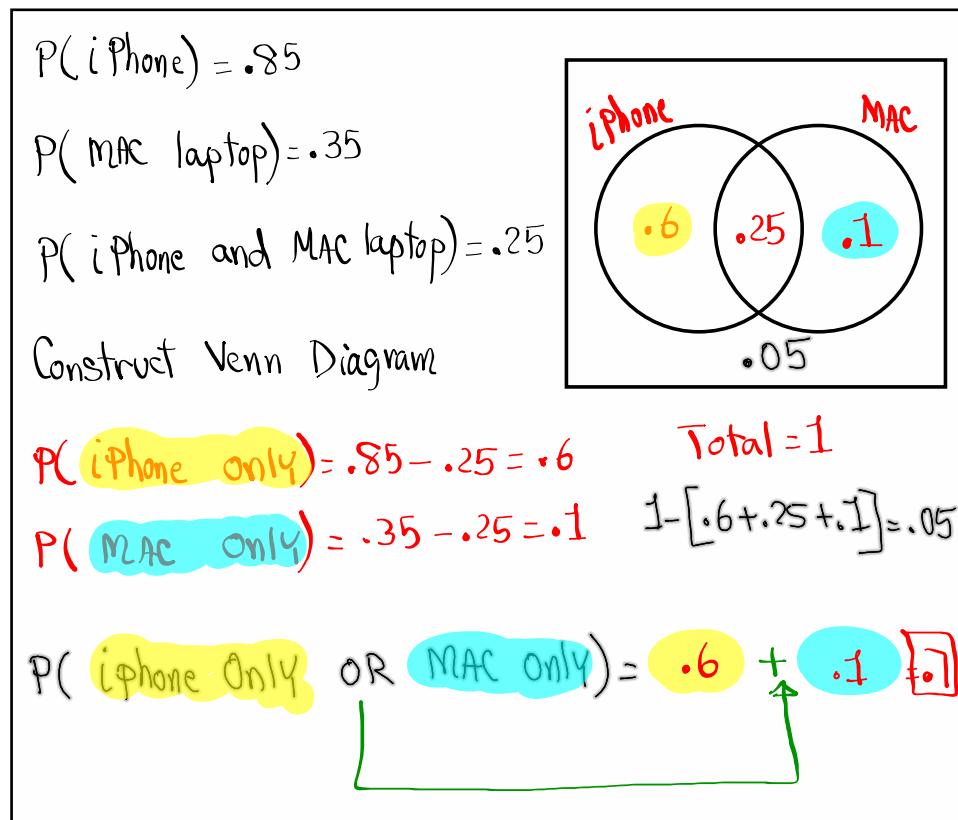 P(iPhone) = .85
P(MAC laptop) = .35
P(iPhone and MAC laptop) = .25
Construct Venn Diagram
iphone MAC
.6 .25 .1
.05
P(iPhone only) = .85 - .25 = .6
P(MAC only) = .35 - .25 = .1
Total = 1
1-[.6+.25+.1] = .05
P(iphone Only OR MAC Only) = .6 + .1 = .7